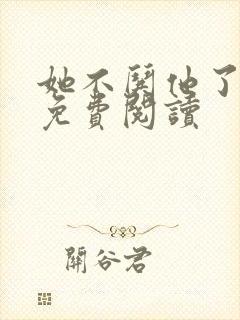 她不鬨他了
免費閱讀
關谷君